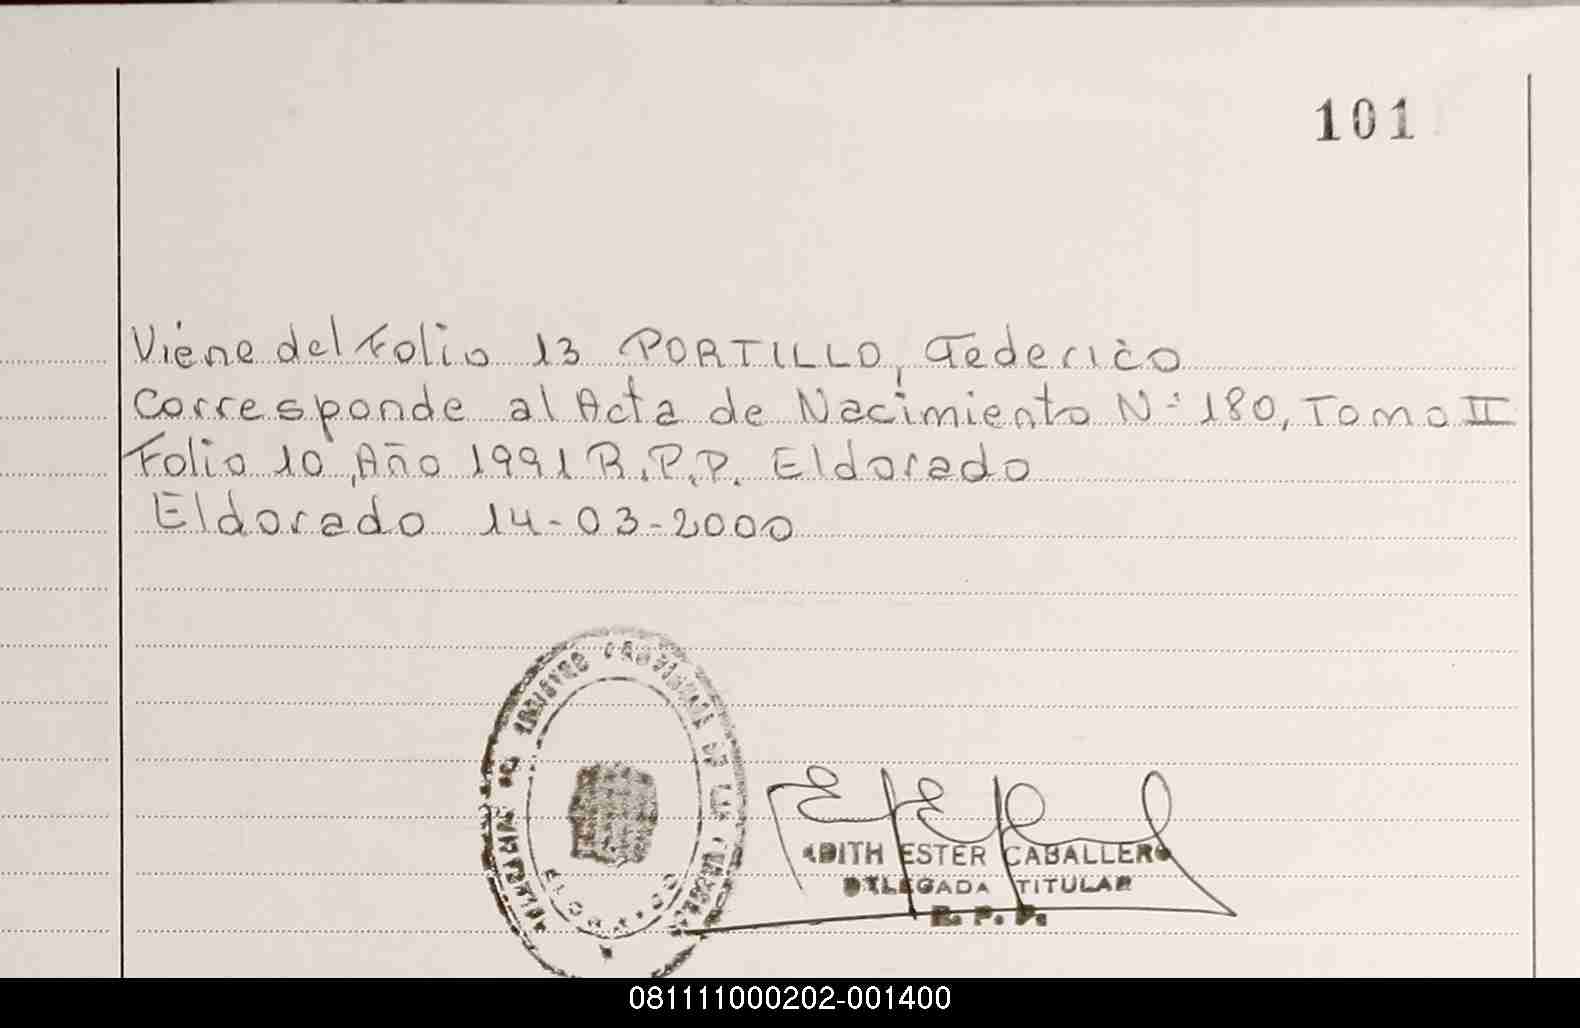 101
Viene del Folio 13 PORTILLO, Federico
Corresponde al Acta de Nacimiento Nº 180, Tomo II
Folio 10, Año 1991 R.P.P. Eldorado
Eldorado 14-03-2000
REGISTRO PROVINCIAL DE LAS
EDITH ESTER CABALLERO
DELEGADA TITULAR
R. P. P.
081111000202-001400